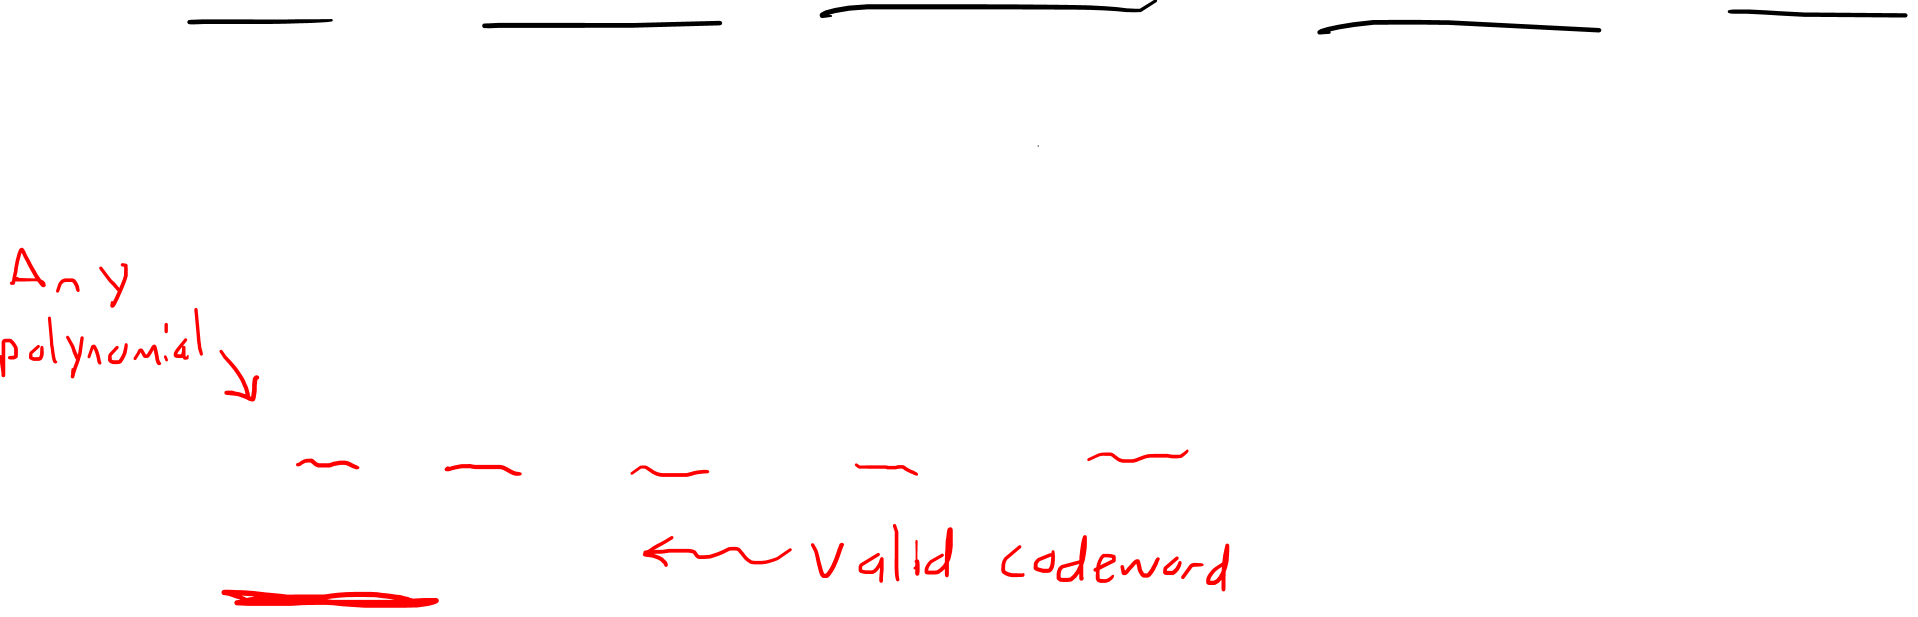 Any
polynomial
valid codeword